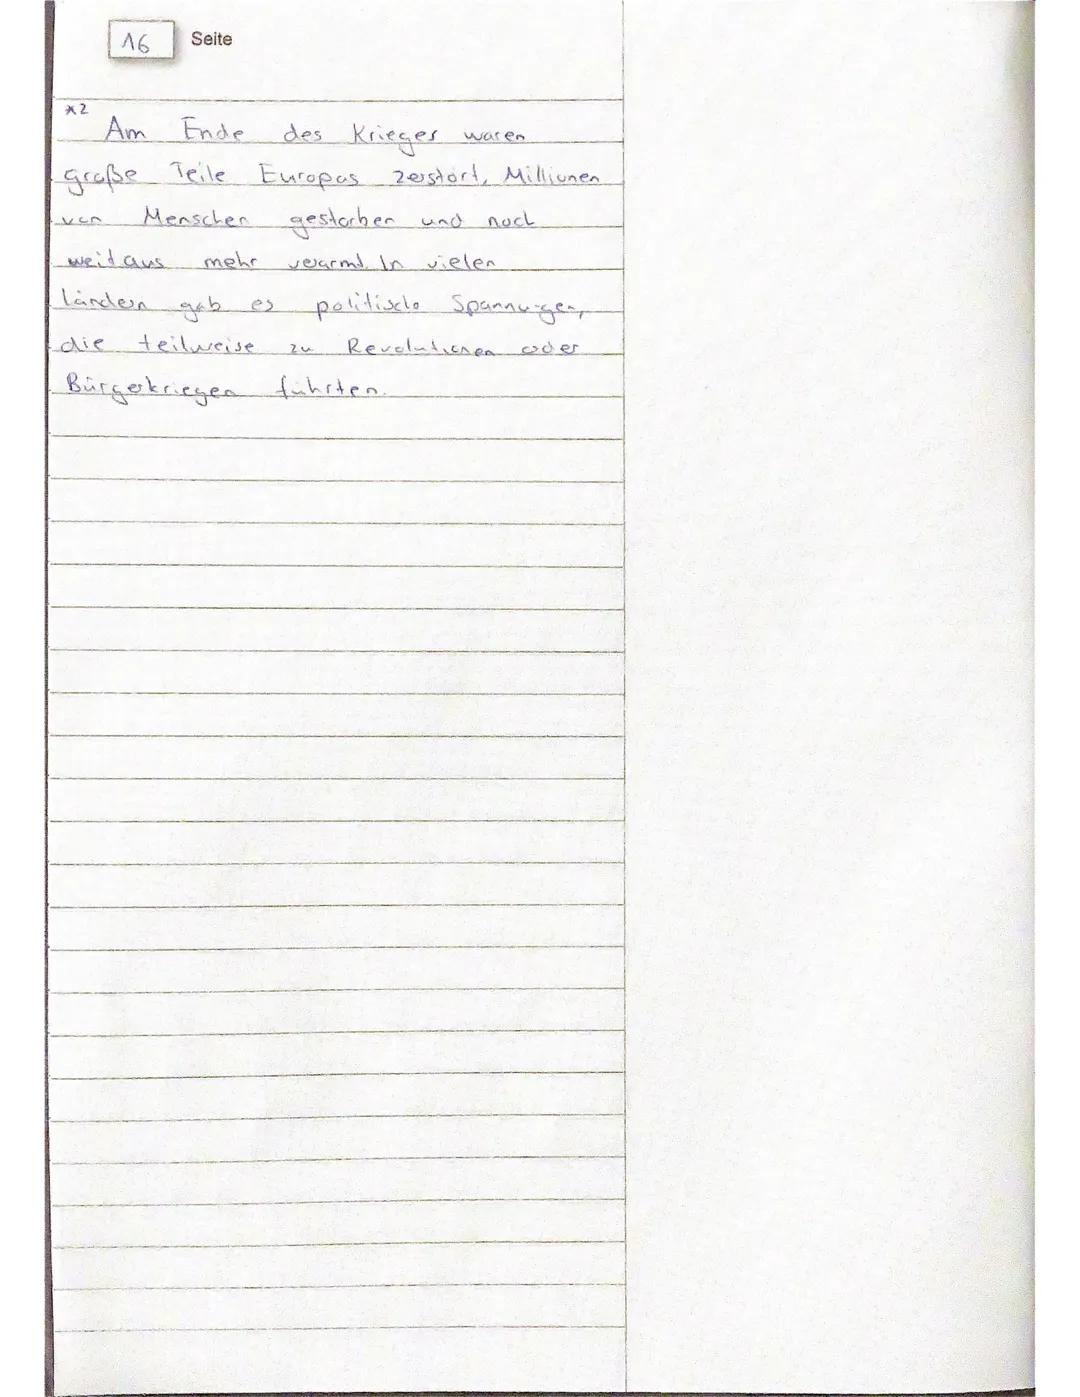 16 Seite
*2
Am Ende des Krieges waren
große Teile Europas zerstört, Millionen
von Menschen gestorben und noch
weitaus mehr verarmt. In vielen
Ländern gab es politische Spannungen,
die teilweise zu Revolutionen oder
Bürgerkriegen führten.